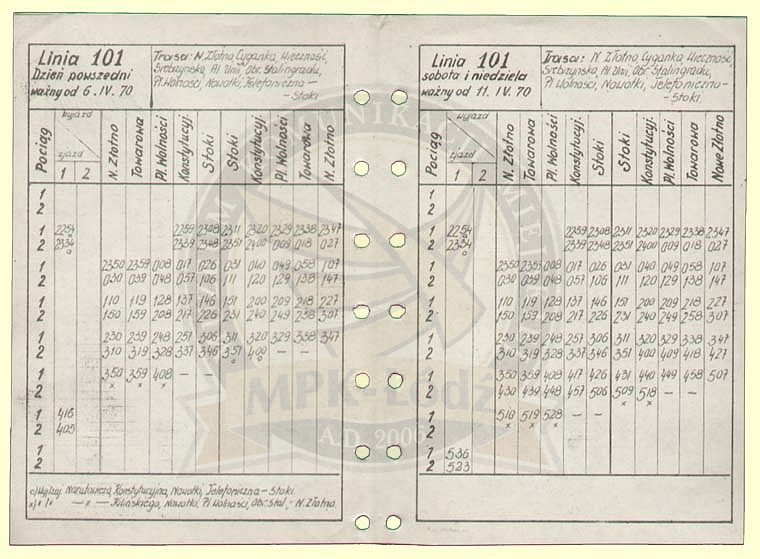 Linia 101
Dzień powszedni
ważny od 6.IV.70
Trasa: N. Złotno, Cyganka, Wieczność,
Srebrzyńska, Al. Unii, Obr. Stalingradu,
Pl. Wolności, Nowotki, Telefoniczna –
– Stoki
Pociąg wyjazd zjazd 1 2 N. Złotno Towarowa Pl. Wolności Konstytucyj. Stoki Stoki Konstytucyj. Pl. Wolności Towarowa N. Złotno
1
2
1 2254 2259 2308 2311 2320 2329 2338 2347
2 2334 2339 2348 2351 2400 009 018 027
1 2350 2359 008 017 026 031 040 049 058 107
2 030 039 048 057 106 111 120 129 138 147
1 110 119 128 137 146 151 200 209 218 227
2 150 159 208 217 226 231 240 249 258 307
1 230 239 248 257 306 311 320 329 338 347
2 310 319 328 337 346 351 400 – –
1 350 359 408 – –
2 x x x
1 416
2 405
1
2
o) Wyjazd Narutowicza, Konstytucyjna, Nowotki, Telefoniczna – Stoki
x) – x – Kilińskiego, Nowotki, Pl. Wolności, Obr. Stal. – N. Złotno
Linia 101
sobota i niedziela
ważny od 11.IV.70
Trasa: N. Złotno, Cyganka, Wieczność,
Srebrzyńska, Al. Unii, Obr. Stalingradu,
Pl. Wolności, Nowotki, Telefoniczna –
– Stoki
Pociąg wyjazd zjazd 1 2 N. Złotno Towarowa Pl. Wolności Konstytucyj. Stoki Stoki Konstytucyj. Pl. Wolności Towarowa Nowe Złotno
1
2
1 2254 2259 2308 2311 2320 2329 2338 2347
2 2334 2339 2348 2351 2400 009 018 027
1 2350 2359 008 017 026 031 040 049 058 107
2 030 039 048 057 106 111 120 129 138 147
1 110 119 128 137 146 151 200 209 218 227
2 150 159 208 217 226 231 240 249 258 307
1 230 239 248 257 306 311 320 329 338 347
2 310 319 328 337 346 351 400 409 418 427
1 350 359 408 417 426 431 440 449 458 507
2 430 439 448 457 506 509 518 – –
1 510 519 528 – –
2 x x x
1 536
2 523
MPK-Łódź
A.D. 2006